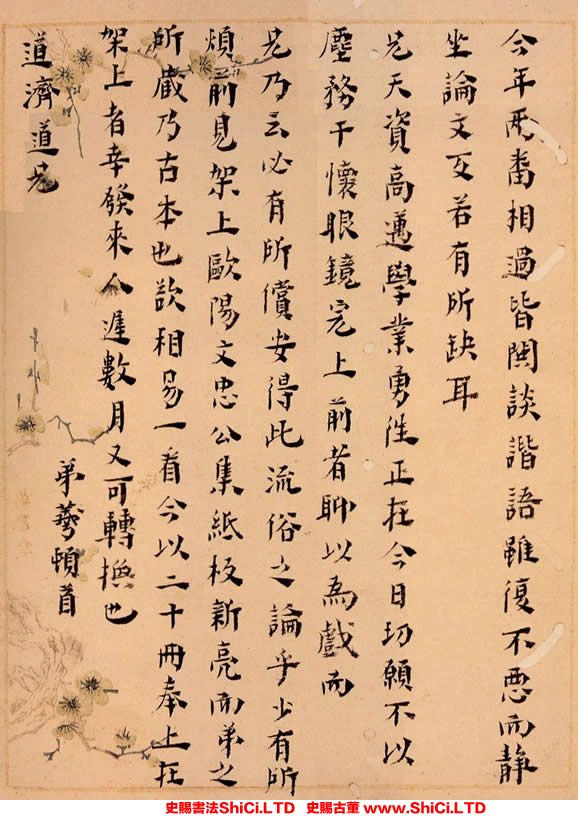 今年兩番相過皆閒談諧語雖復不惡而靜
坐論文反若有所缺耳
兄天資高邁學業勇進正在今日切願不以
塵務干懷眼鏡完上前者聊以為戲而
兄乃云必有所償安得此流俗之論乎少有所
煩前見架上歐陽文忠公集紙板新亮而弟之
所藏乃古本也欲相易一看今以二十冊奉上在
架上者幸發來人遲數月又可轉換也
弟夢頓首
道濟道兄
史賜書法ShiCi.LTD 史賜古董 www.ShiCi.LTD